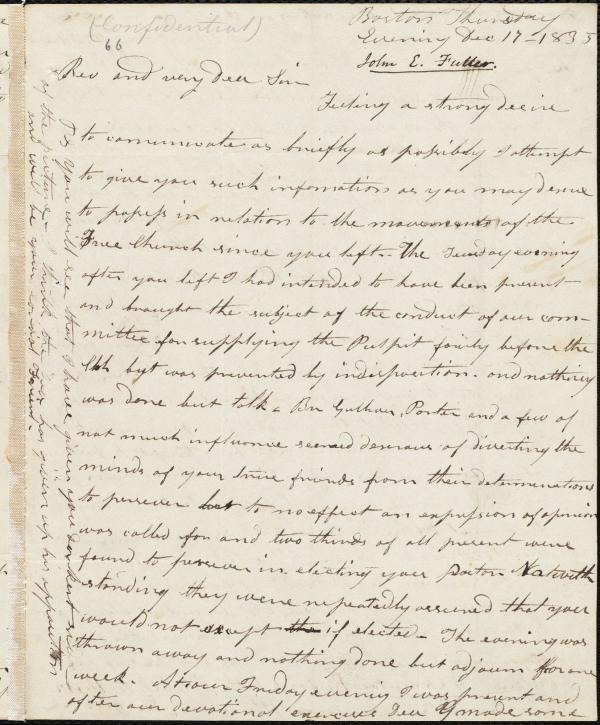 (Confidential)
66
Boston Thursday
Evening Dec 17 - 1835
John E. Fuller.
Rev and very dear Sir
Feeling a strong desire
to communicate as briefly as possibly I attempt
to give you such infomation as you may desire
to posess in relation to the movements of the
Free Church since you left - The Tuesday evening
after you left I had intended to have been present
and brought the subject of the conduct of our com-
mittee for supplying the Pulpit fairly before the
Chh but was prevented by indisposition - and nothing
was done but talk - Br Gulliver, Porter and a few of
not much influence seemed desirous of diverting the
minds of your true friends from their determinations
to persever but to no effect an expression of opinion
was called for and two thirds of all present were
found to persever in electing your pastor Notwith
standing they were repeatedly assured that you
would not except if elected - The evening was
thrown away and nothing done but adjourn for one
week - At our Friday evening I was present and
after our devotional exercise Dea G made some
you will see that I have given you
of the picture - I think the has given up his opposition
and will be your Friend -